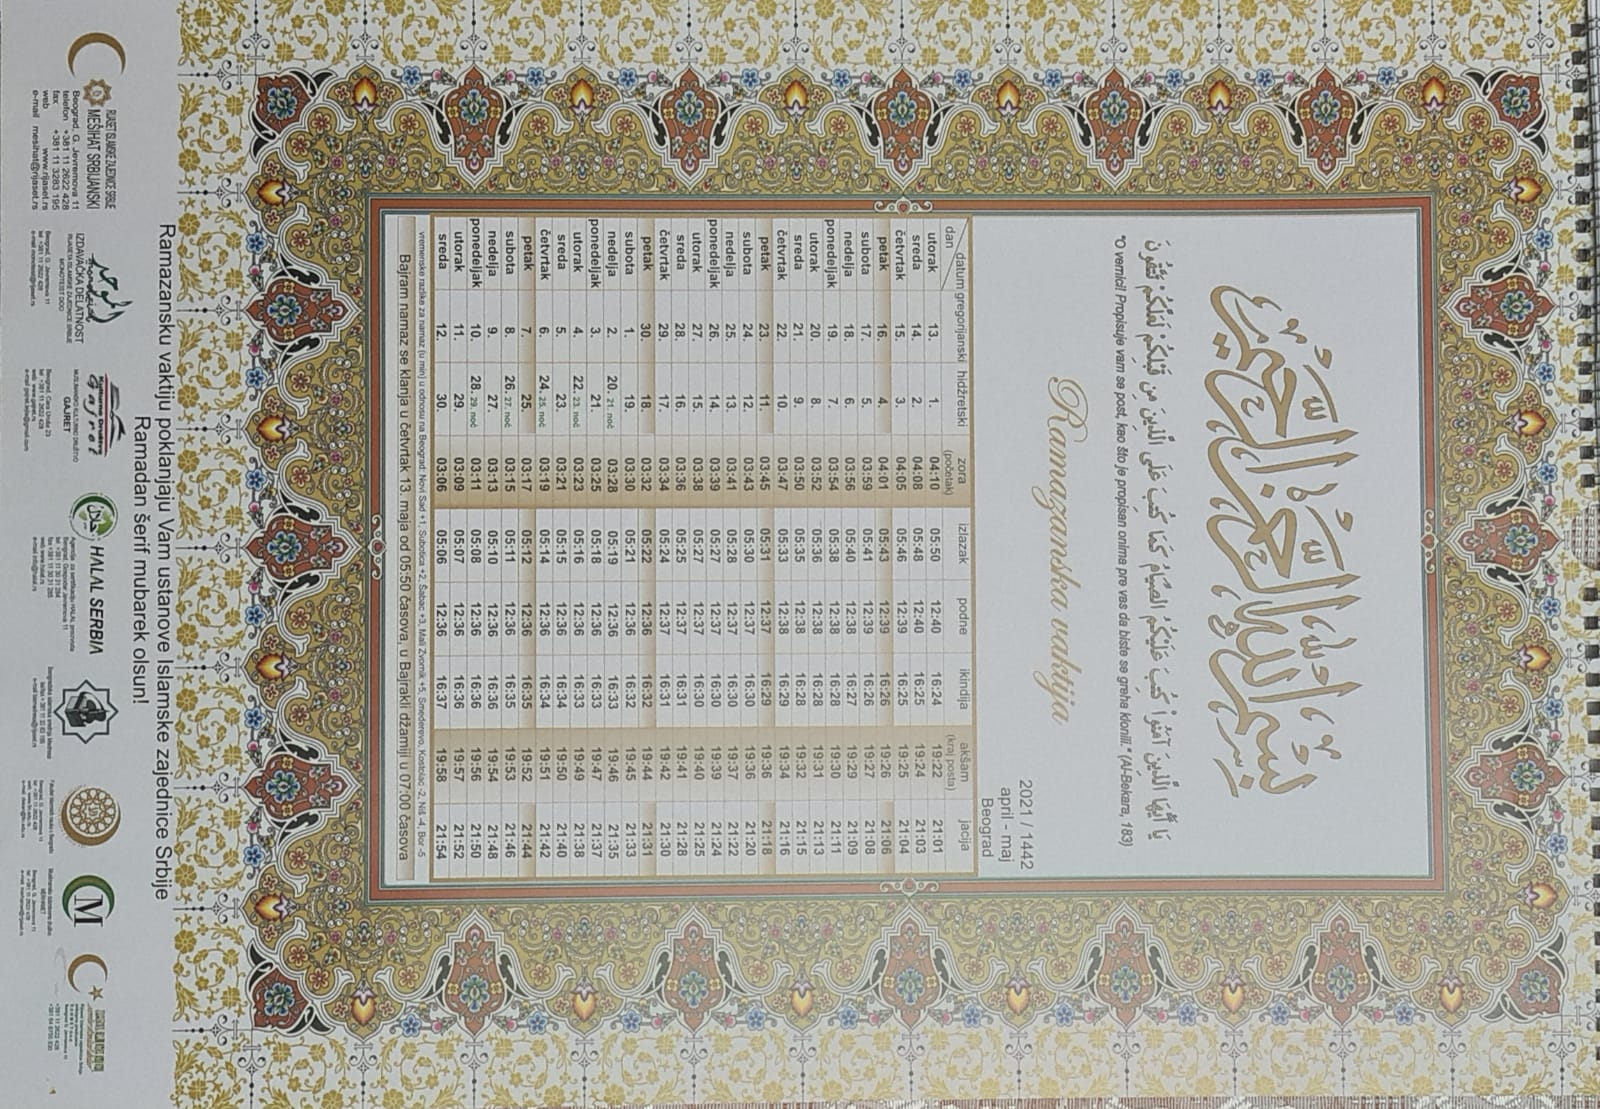 بسم الله الرحمن الرحيم
يَا أَيُّهَا الَّذِينَ آمَنُوا كُتِبَ عَلَيْكُمُ الصِّيَامُ كَمَا كُتِبَ عَلَى الَّذِينَ مِن قَبْلِكُمْ لَعَلَّكُمْ تَتَّقُونَ
"O vernici! Propisuje vam se post, kao što je propisan onima pre vas da biste se greha klonili." (Al-Bekara, 183)
Ramazanska vaktija
2021 / 1442
april - maj
Beograd
dan datum gregorijanski hidžretski zora (početak) izlazak podne ikindija akšam (kraj posta) jacija
utorak 13. 1. 04:10 05:50 12:40 16:24 19:22 21:01
sreda 14. 2. 04:08 05:48 12:40 16:25 19:24 21:03
četvrtak 15. 3. 04:05 05:46 12:39 16:25 19:25 21:04
petak 16. 4. 04:01 05:43 12:39 16:26 19:26 21:06
subota 17. 5. 03:59 05:41 12:39 16:26 19:27 21:08
nedelja 18. 6. 03:56 05:40 12:38 16:27 19:29 21:09
ponedeljak 19. 7. 03:54 05:38 12:38 16:28 19:30 21:11
utorak 20. 8. 03:52 05:36 12:38 16:28 19:31 21:13
sreda 21. 9. 03:50 05:35 12:38 16:28 19:32 21:15
četvrtak 22. 10. 03:47 05:33 12:38 16:29 19:34 21:16
petak 23. 11. 03:45 05:31 12:37 16:29 19:36 21:18
subota 24. 12. 03:43 05:30 12:37 16:30 19:36 21:20
nedelja 25. 13. 03:41 05:28 12:37 16:30 19:37 21:22
ponedeljak 26. 14. 03:39 05:27 12:37 16:30 19:39 21:24
utorak 27. 15. 03:38 05:27 12:37 16:30 19:40 21:25
sreda 28. 16. 03:36 05:25 12:37 16:31 19:41 21:28
četvrtak 29. 17. 03:34 05:24 12:37 16:31 19:42 21:30
petak 30. 18. 03:32 05:22 12:36 16:32 19:44 21:31
subota 1. 19. 03:30 05:21 12:36 16:32 19:45 21:33
nedelja 2. 20. 21. noć 03:28 05:19 12:36 16:33 19:46 21:35
ponedeljak 3. 21. 03:25 05:18 12:36 16:33 19:47 21:37
utorak 4. 22. 23. noć 03:23 05:16 12:36 16:33 19:49 21:38
sreda 5. 23. 03:21 05:15 12:36 16:34 19:50 21:40
četvrtak 6. 24. 25. noć 03:19 05:14 12:36 16:34 19:51 21:42
petak 7. 25. 03:17 05:12 12:36 16:35 19:52 21:44
subota 8. 26. 27. noć 03:15 05:11 12:36 16:35 19:53 21:46
nedelja 9. 27. 03:13 05:10 12:36 16:36 19:54 21:48
ponedeljak 10. 28. 29. noć 03:11 05:08 12:36 16:36 19:56 21:50
utorak 11. 29. 03:09 05:07 12:36 16:36 19:57 21:52
sreda 12. 30. 03:06 05:06 12:36 16:37 19:58 21:54
vremenske razlike za namaz (u min) u odnosu na Beograd: Novi Sad +1, Subotica +2, Šabac +3, Mali Zvornik +5, Smederevo, Kostolac -2, Niš -4, Bor -5
Bajram namaz se klanja u četvrtak 13. maja od 05:50 časova, u Bajrakli džamiji u 07:00 časova
Ramazansku vaktiju poklanjaju Vam ustanove Islamske zajednice Srbije
Ramadan šerif mubarek olsun!
RIJASET ISLAMSKE ZAJEDNICE SRBIJE
MEŠIHAT SRBIJANSKI
Beograd, G. Jevremova 11
telefon +381 11 2622 428
fax +381 11 3283 195
web www.rijaset.rs
e-mail mesihat@rijaset.rs
IZDAVAČKA DELATNOST
RIJASETA ISLAMSKE ZAJEDNICE SRBIJE
MONOTEIST DOO
Kulturno Društvo
Gajret
MUSLIMANSKO KULTURNO DRUŠTVO
GAJRET
حلال HALAL SERBIA
M